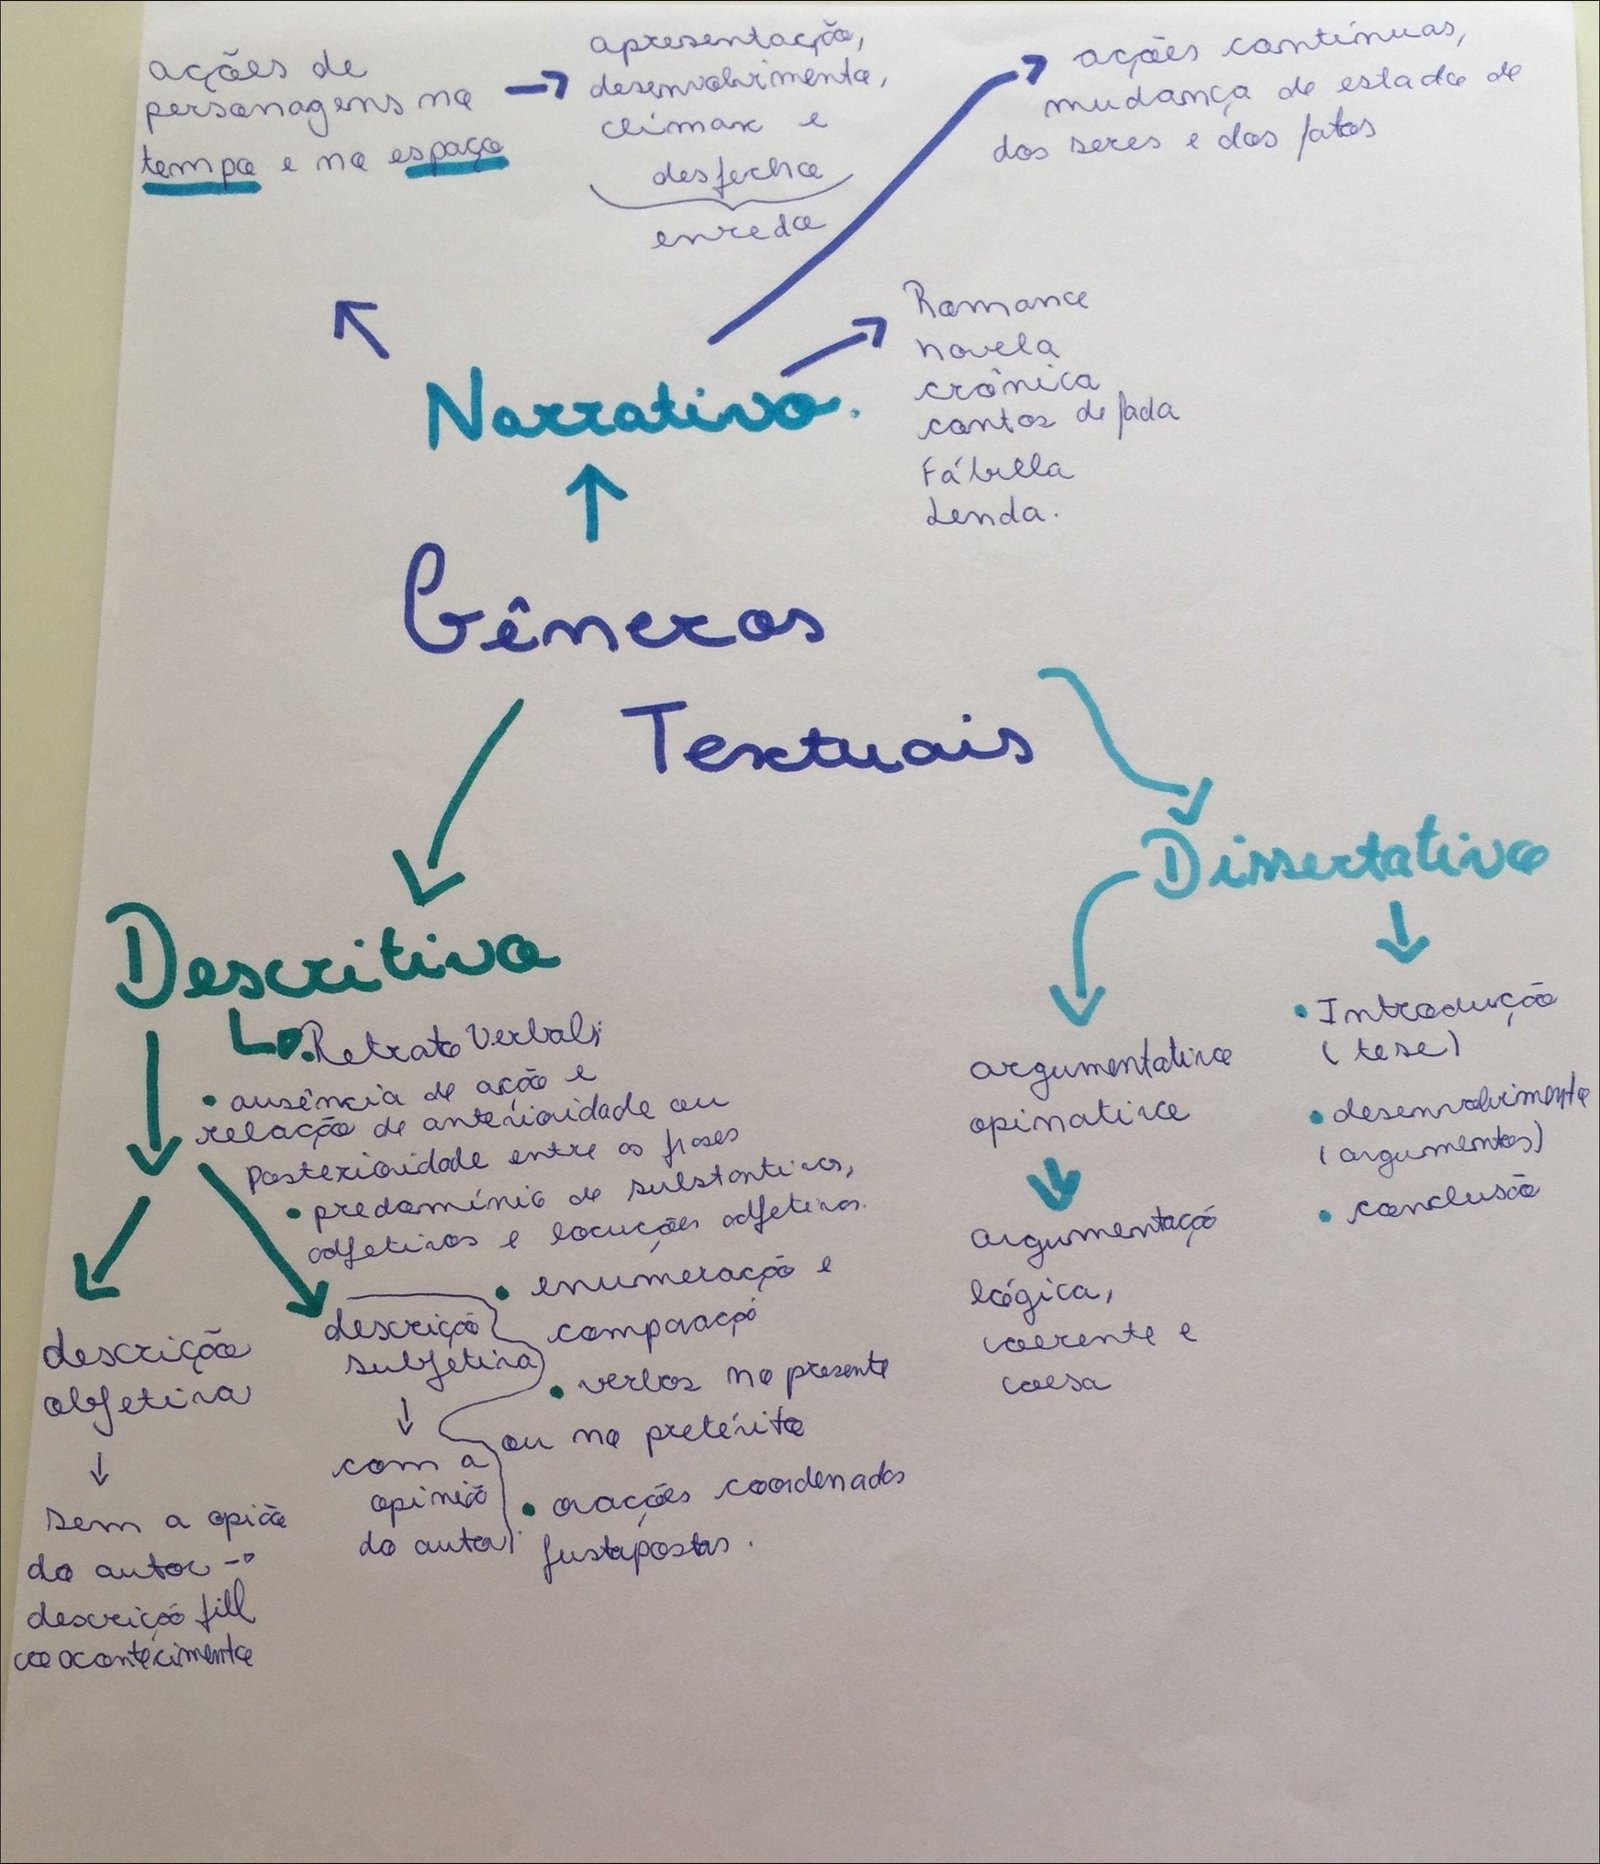 ações de
personagens no
tempo e no espaço
apresentação,
desenvolvimento,
clímax e
desfecho
enredo
ações contínuas,
mudança de estado de
dos seres e dos fatos
Romance
novela
crônica
contos de fada
Fábulla
Lenda.
Narrativo.
Gêneros
Textuais
Dissertativo
argumentativo
opinativo
argumentaçõ
lógica,
coerente e
coesa
• Introdução
(tese)
• desenvolvimento
(argumentos)
• conclusão
Descritivo
Retrato Verbal;
• ausência de ação e
relação de anterioridade ou
Posterioridade entre as frases
• predomínio de substantivos,
adjetivos e locuções adjetivas.
• enumeração e
comparaçõ
• verbos no presente
ou no pretérito
• orações coordenadas
justapostas.
descrição
objetiva
sem a opião
do autor
descriçõ
acontecimento
descrição
subjetiva
com a
opinião
do autor